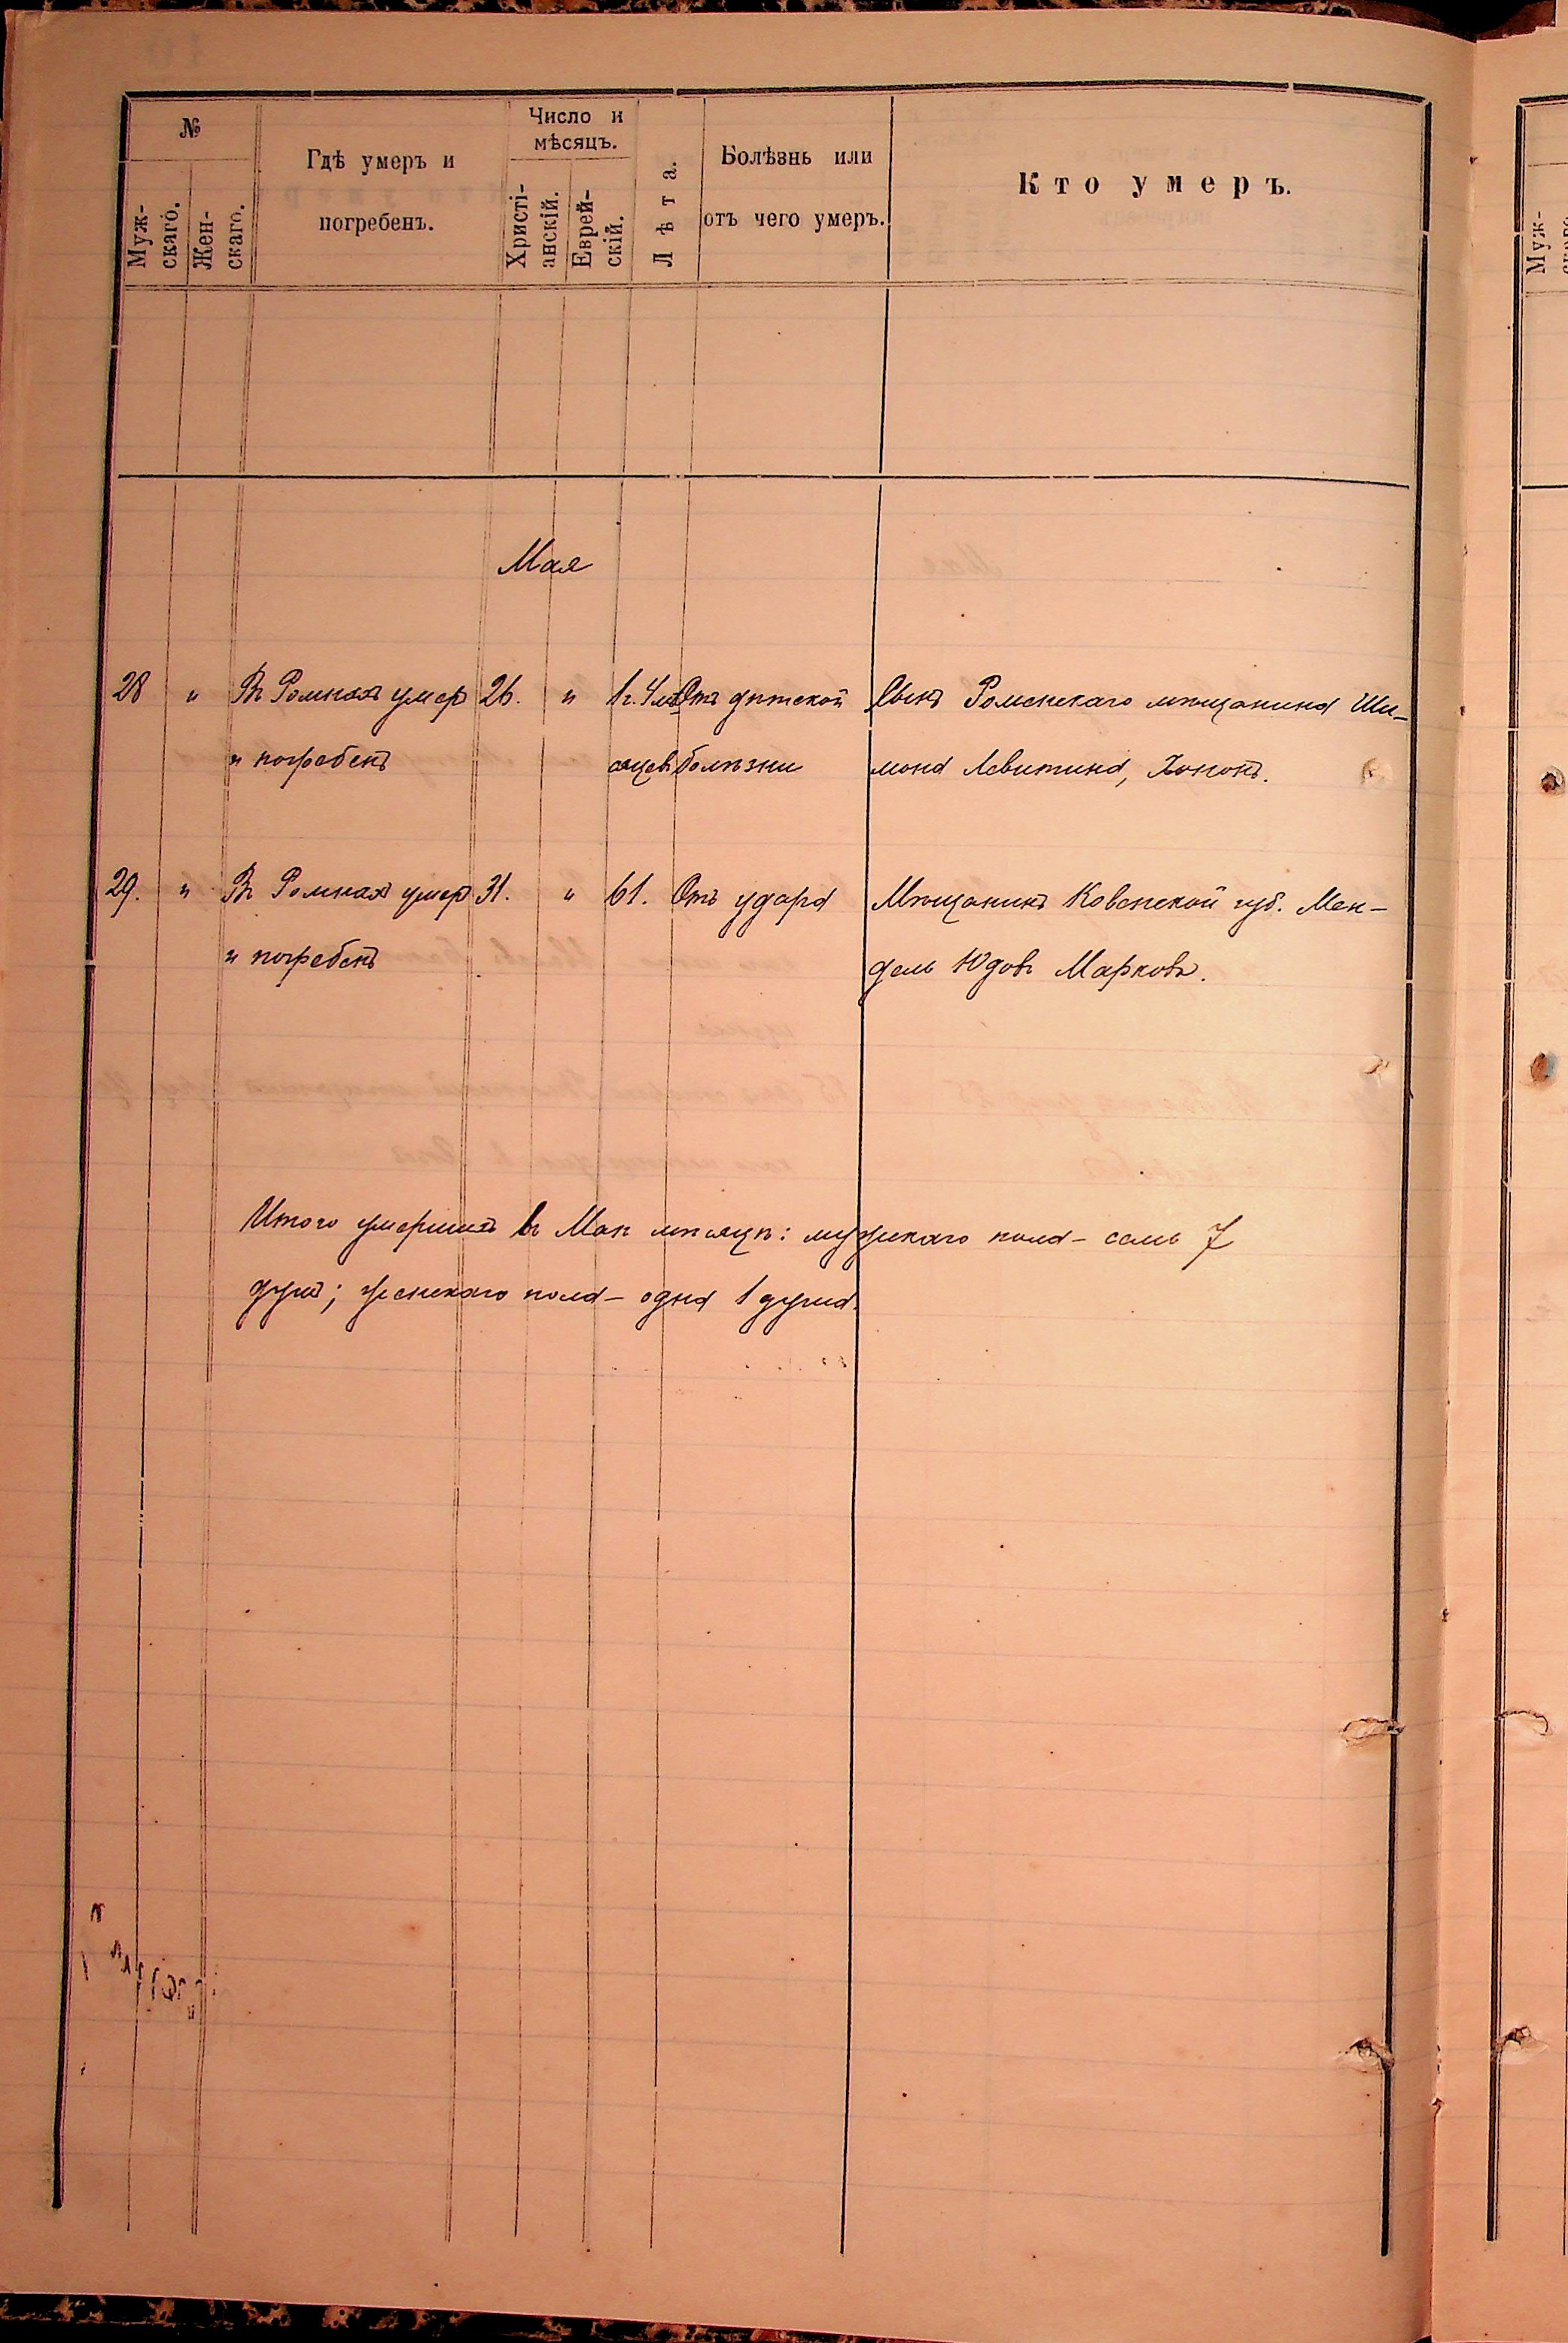 №
Муж-
скаго.
Жен-
скаго.
Гдѣ умеръ и
погребенъ.
Число и
мѣсяцъ.
Христі-
анскій.
Еврей-
скій.
Лѣта.
Болѣзнь или
отъ чего умеръ.
Кто умеръ.
Мая
28 " Въ Ромнахъ умер 26. " 1 г. 4 мѣ Отъ дѣтской Сынъ Роменскаго мѣщанина Ши-
и погребенъ сяцевъ болѣзни мона Левитина, Хононъ.
29. " Въ Ромнахъ умер 31. " 61. Отъ удара Мѣщанинъ Ковенской губ. Мен-
и погребенъ дель Юдовъ Марковъ.
Итого умершихъ въ Маѣ мѣсяцѣ: мужскаго пола - семь 7
душъ; женскаго пола - одна 1 душа.
Муж-